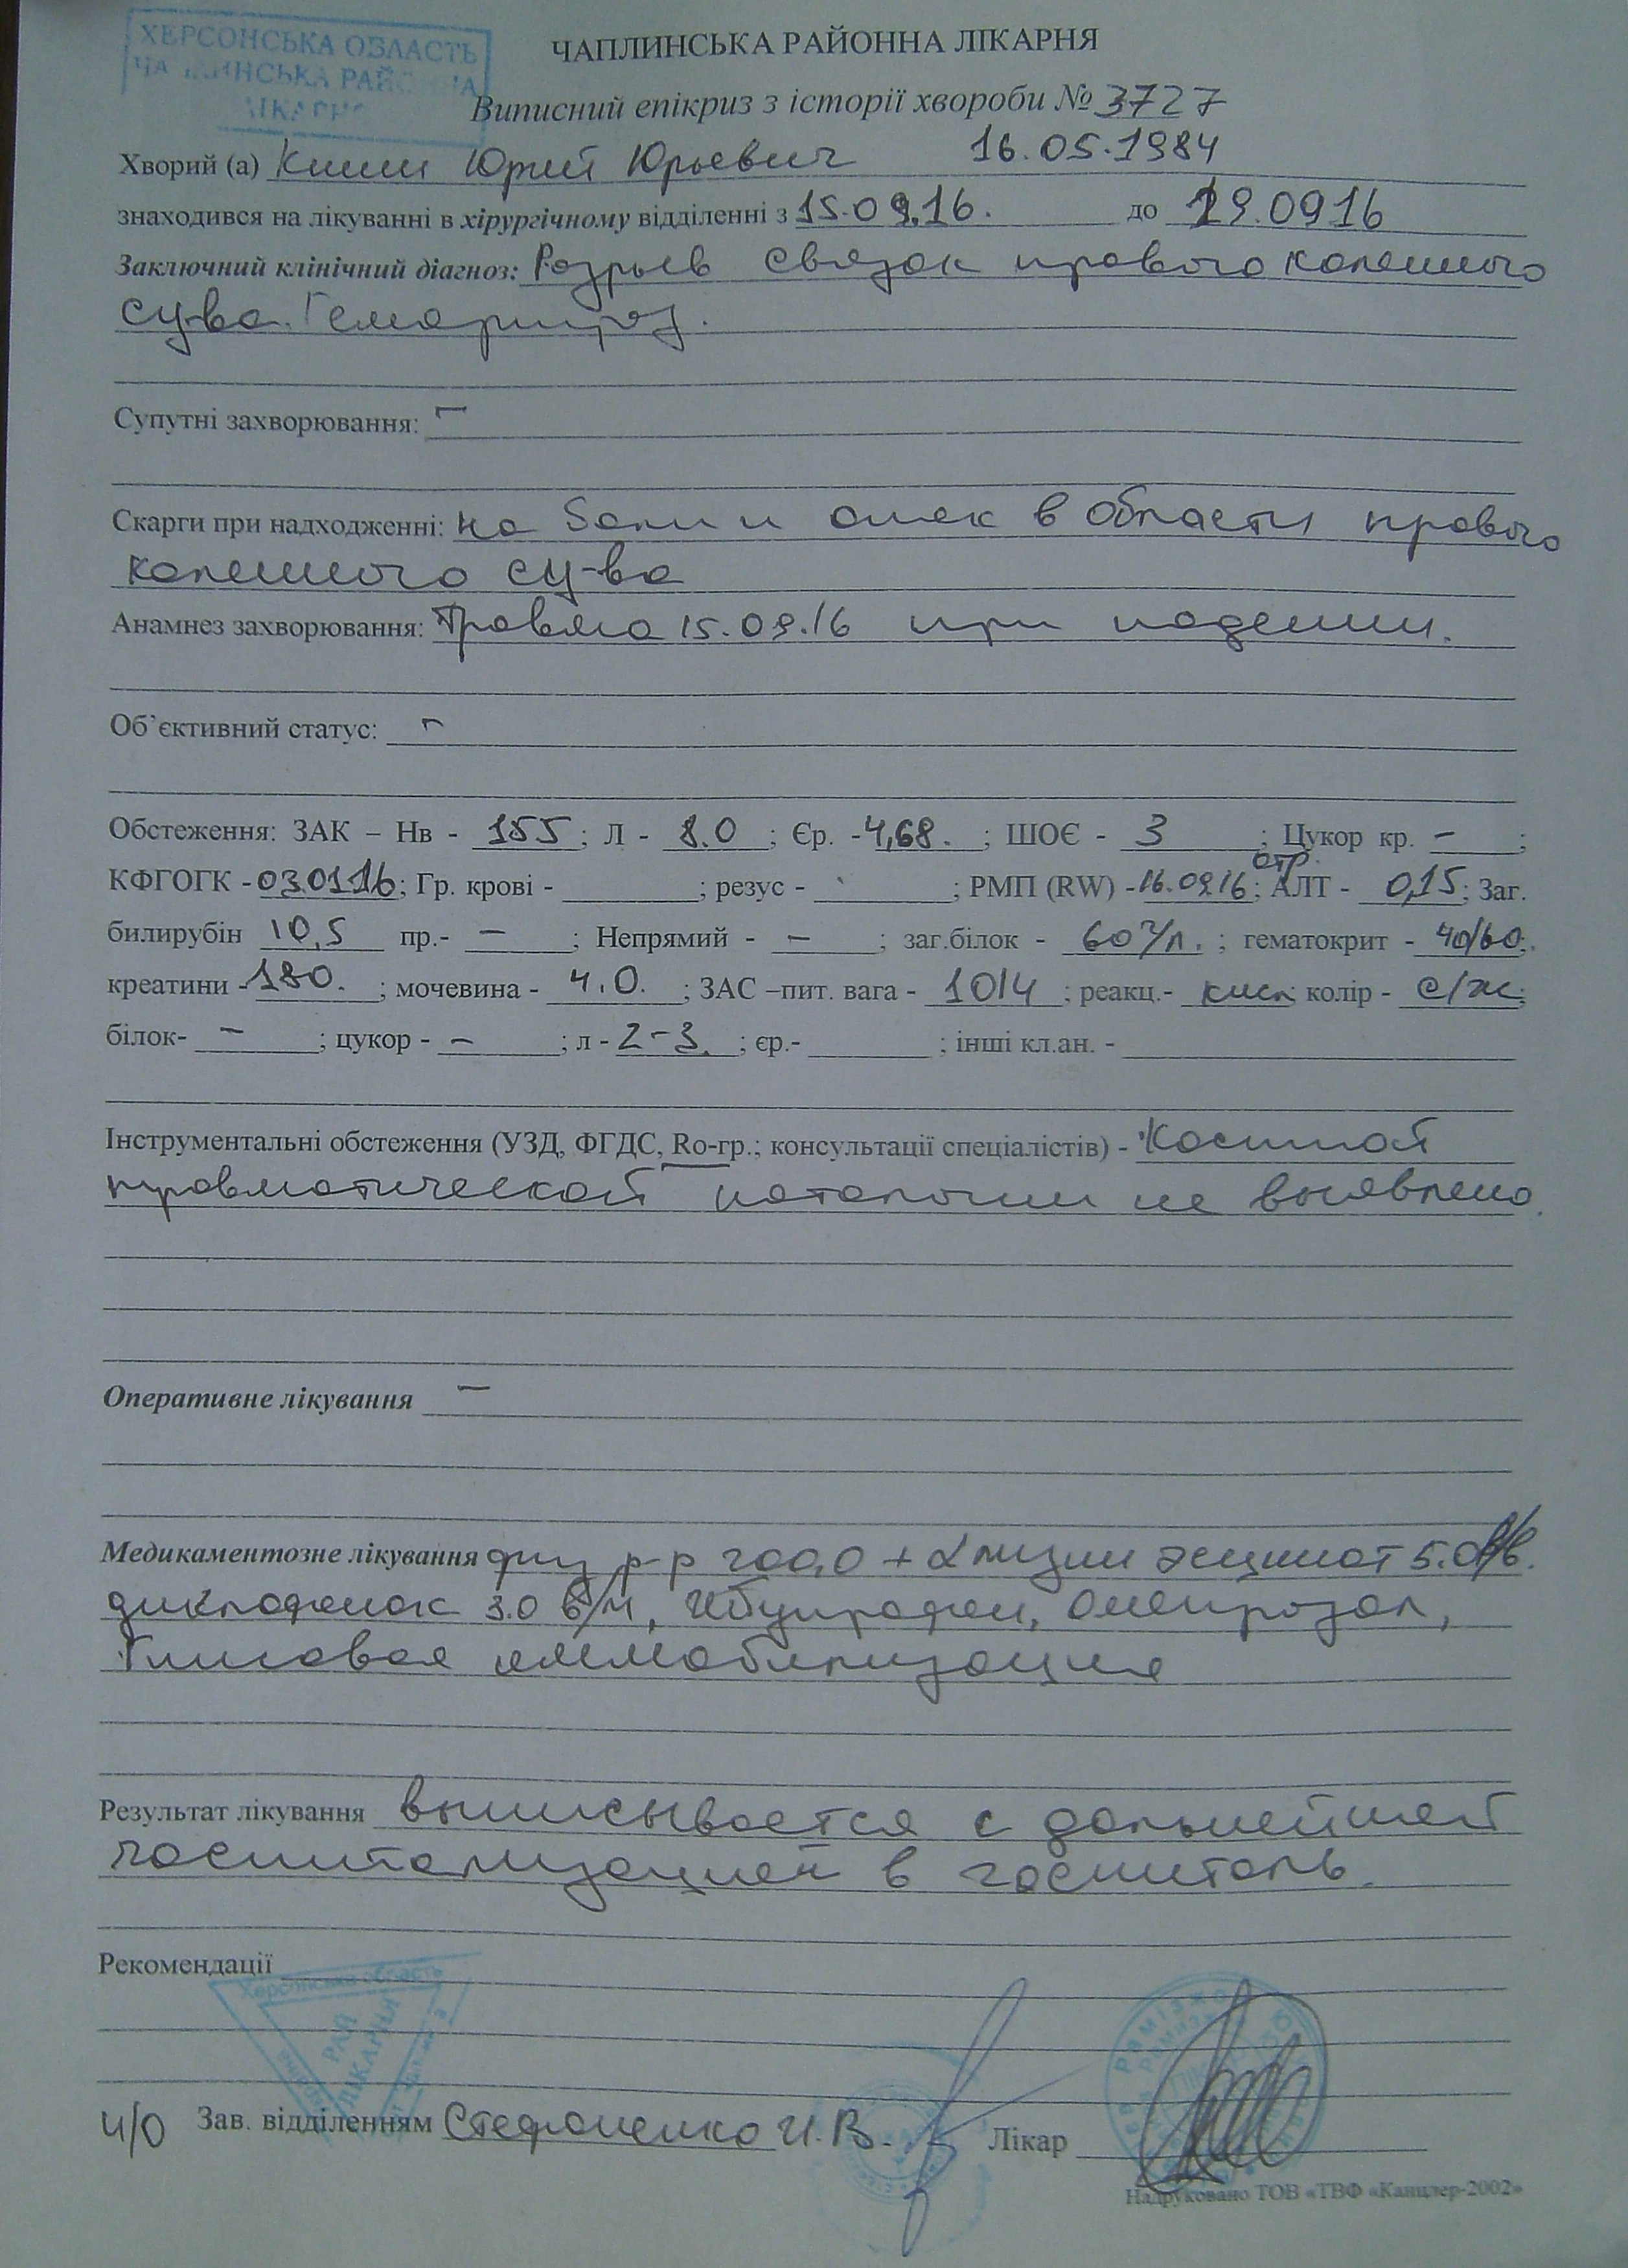 ХЕРСОНСЬКА ОБЛАСТЬ
ЧАПЛИНСЬКА РАЙОННА
ЛІКАРНЯ
ЧАПЛИНСЬКА РАЙОННА ЛІКАРНЯ
Виписний епікриз з історії хвороби № 3727
Хворий (а) Юрий Юрьевич 16.05.1984
знаходився на лікуванні в хірургічному відділенні з 15.09.16. до 19.0916
Заключний клінічний діагноз: Разрыв связок правого коленного
су-ва. Гемартроз.
Супутні захворювання: –
Скарги при надходженні: на боли и отек в области правого
коленного су-ва
Анамнез захворювання: Травма 15.09.16 при падении.
Об’єктивний статус: –
Обстеження: ЗАК – Нв - 155; Л - 8.0; Єр. - 4,68.; ШОЄ - 3; Цукор кр. –;
КФГОГК - 030116; Гр. крові - ; резус - ; РМП (RW) - 16.0916 отр.; АЛТ - 0,15; Заг.
билирубін 10,5 пр.- –; Непрямий - –; заг.білок - 60 г/л.; гематокрит - 40/60;
креатини - 180.; мочевина - 4.0.; ЗАС –пит. вага - 1014; реакц.- кисл; колір - с/ж;
білок- –; цукор - –; л - 2-3.; єр.- ; інші кл.ан. -
Інструментальні обстеження (УЗД, ФГДС, Ro-гр.; консультації спеціалістів) - Костной
травматической патологии не выявлено.
Оперативне лікування –
Медикаментозне лікування физ р-р 200,0 + Лизин эсцинат 5.0 в/в.
диклофенак 3.0 в/м, Ибупрофен, Омепразол,
Гипсовая иммобилизация
Результат лікування выписывается с дальнейшей
госпитализацией в госпиталь.
Рекомендації
Херсонська область
РАЙ
ЛІКАРНЯ
И/О Зав. відділенням Стефаненко И.В. Лікар
Надруковано ТОВ «ТВФ «Канцлер-2002»